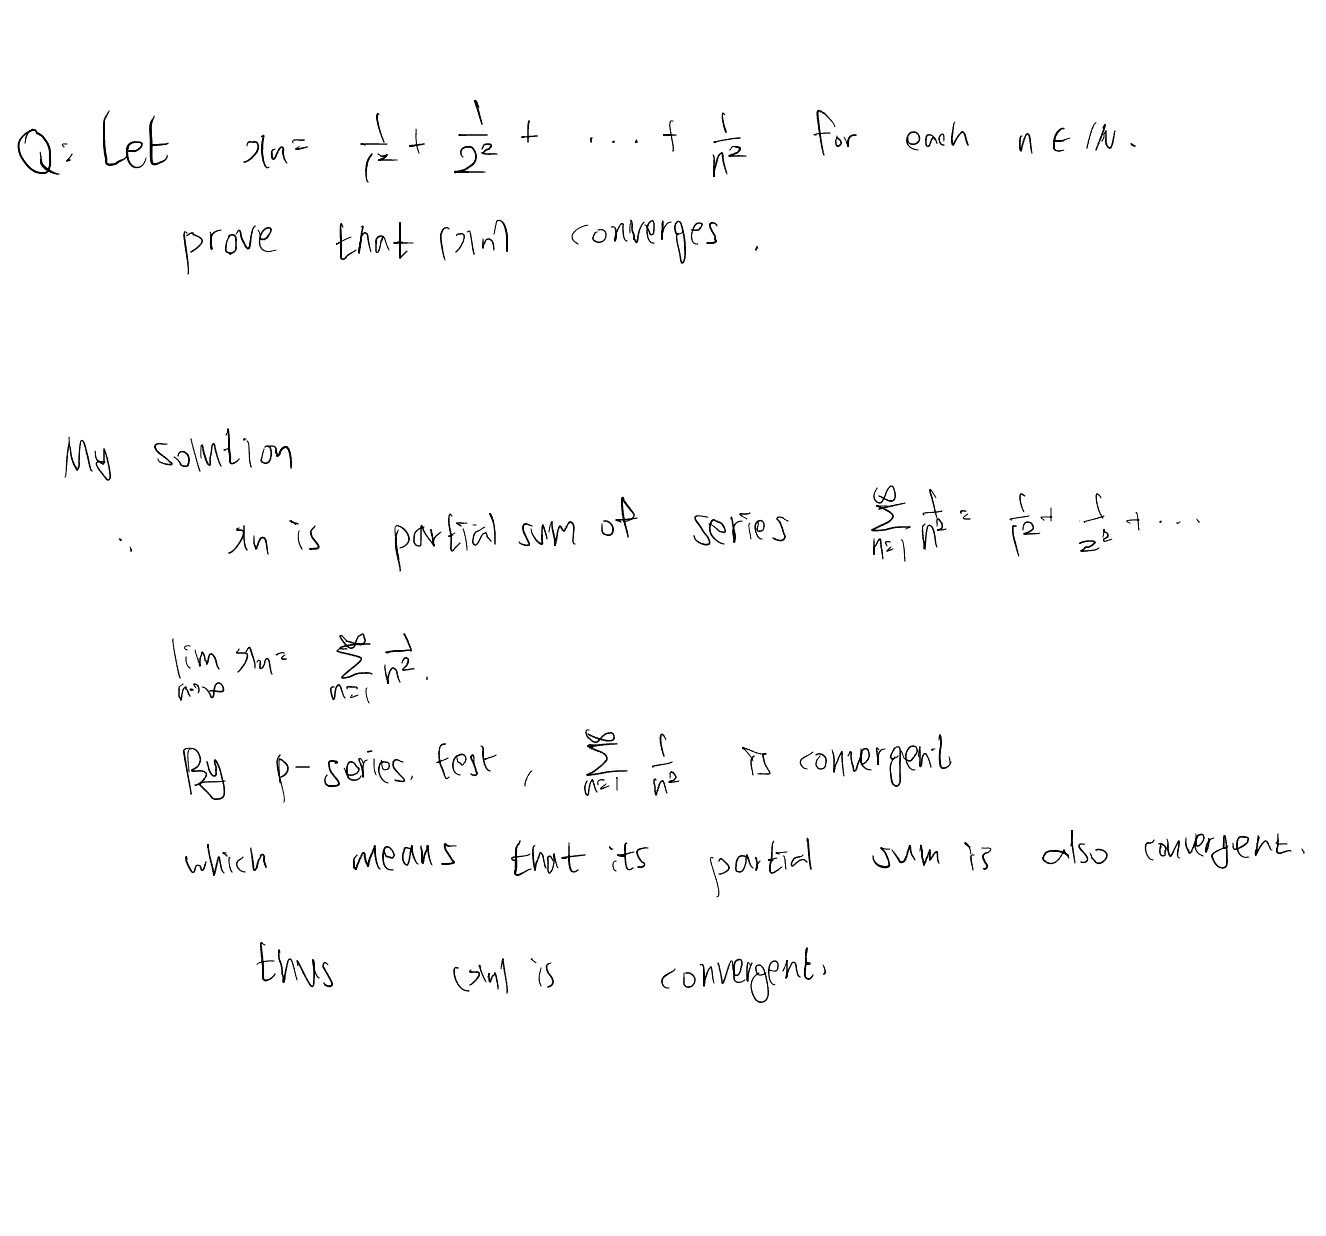 Q: Let xn = 1/1² + 1/2² + ... + 1/n² for each n ∈ ℕ.
prove that (xn) converges.
My solution
∵ xn is partial sum of series ∑_{n=1}^{∞} 1/n² = 1/1² + 1/2² + ...
lim_{n→∞} xn = ∑_{n=1}^{∞} 1/n².
By p-series. test, ∑_{n=1}^{∞} 1/n² is convergent
which means that its partial sum is also convergent.
thus (xn) is convergent.